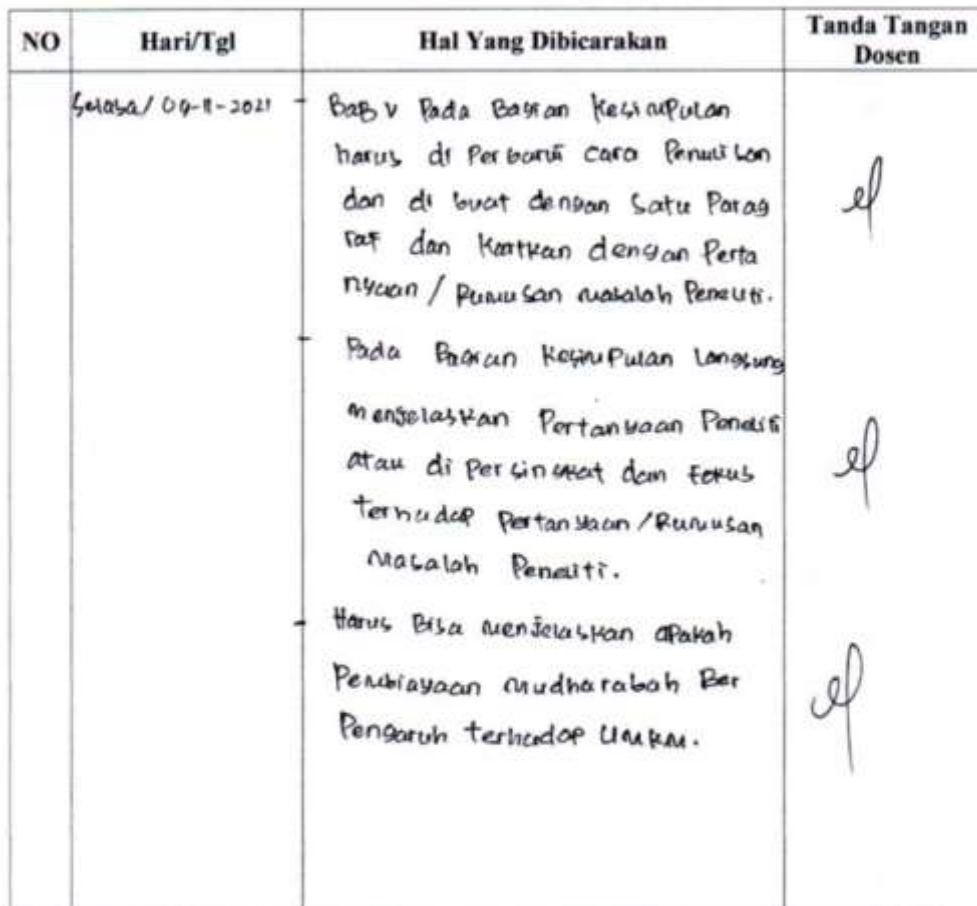 NO Hari/Tgl Hal Yang Dibicarakan Tanda Tangan Dosen
Selasa / 09-11-2021 - Bab V Pada Bagian Kesimpulan
harus di Perbarui cara Penulisan
dan di buat dengan Satu Parag
raf dan Kaitkan dengan Perta
nyaan / Rumusan masalah Peneliti.
- Pada Bagian Kesimpulan Langsung
menjelaskan Pertanyaan Peneliti
atau di Persingkat dan Fokus
terhadap Pertanyaan / Rumusan
Masalah Peneliti.
- Harus Bisa menjelaskan apakah
Pembiayaan mudharabah Ber
Pengaruh terhadap UMKM.